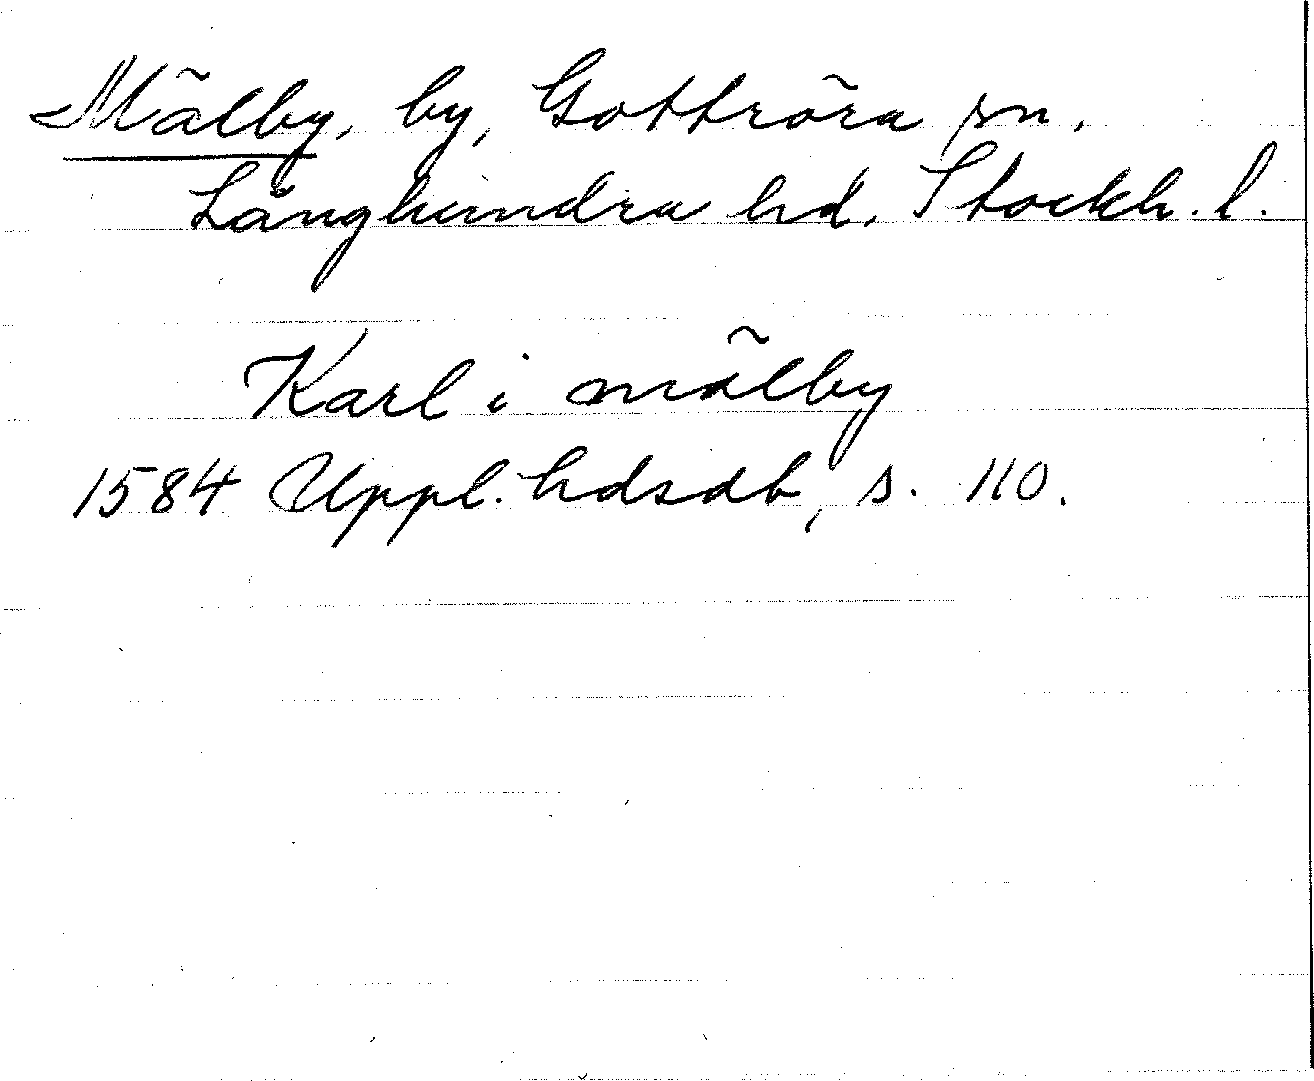 Mälby, by, Gottröra sn.
Långhundra hd, Stockh. l.
Karl i mälby
1584 Uppl. hdsdb, s. 110.